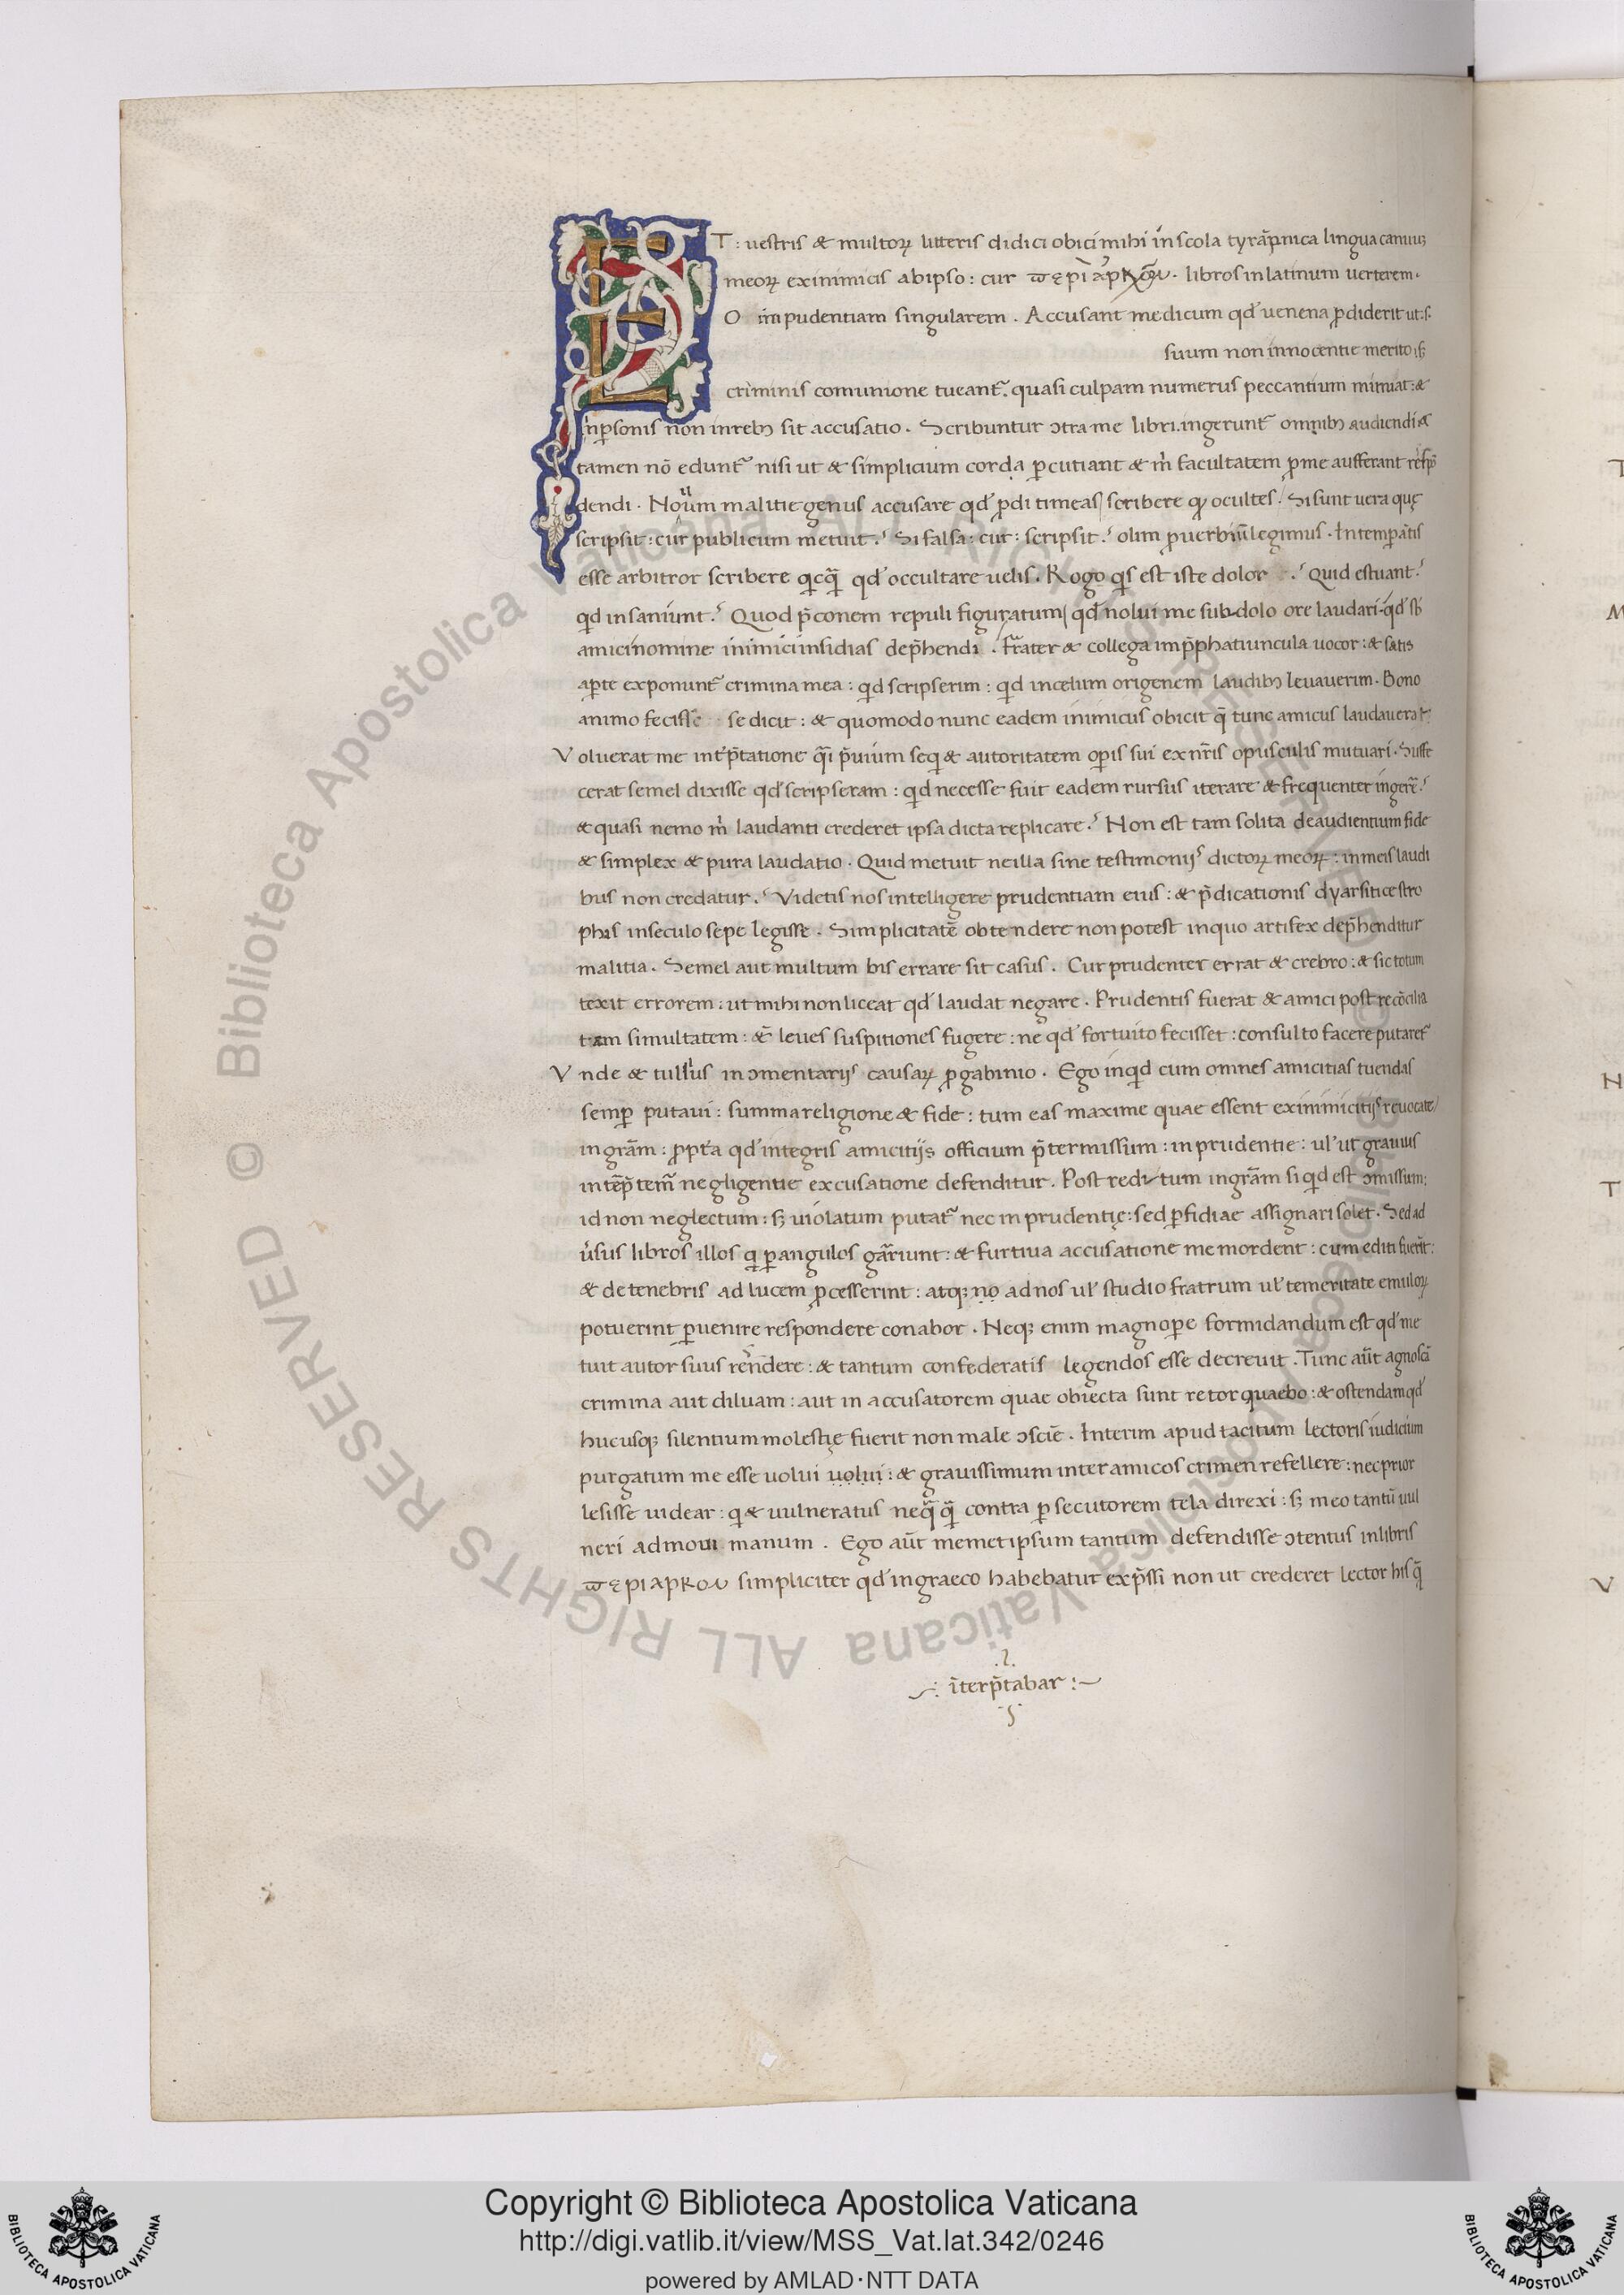 ET : uestris & multoꝝ litteris didici obici mihi in scola tyrāpnica lingua canuū
meoꝝ ex inimicis ab ipso : cur ϖερὶ ἀρκῶν · libros in latinum uerterem ·
O impudentiam singularem . Accusant medicum qd' uenena ꝓdiderit ut : s.
suum non innocentie merito ; sꝫ
criminis comunione tueant᷑ . quasi culpam numerus peccantium minuat : &
in ꝑsonis non in rebꝫ sit accusatio . Scribuntur ↄtra me libri . ingerunt᷑ omnibꝫ audiendi &
tamen nō edunt᷑ nisi ut & simplicium corda ꝑcutiant & m̊ facultatem ꝓ me aufferant respō
dendi . Nouum malitie genus accusare qd' ꝓdi timeas / scribere qꝫ ocultes . Si sunt uera quę
scripsit : cur publicum metuit . Si falsa : cur : scripsit . olim ꝓuerbiū legimus . Intemꝑātis
esse arbitror scribere qicq̄ qd' occultare uelis . Rogo qis est iste dolor . Quid estuant .
qid insaniunt . Quod p̄conem repuli figuratum / qd' nolui me subdolo ore laudari - qd' sb'
amici nomine inimici insidias dep̄hendi . Frater & collega in p̄phatiuncula uocor : & satis
aꝑte exponunt᷑ crimina mea : qid scripserim : qid in celum origenem laudibꝫ leuauerim . Bono
animo fecisse se dicit : & quomodo nunc eadem inimicus obicit q̄ tunc amicus laudauerat
Voluerat me int'p̄tatione q̄i p̄uium seqi & autoritatem oꝑis sui ex nr̄is opusculis mutuari . Suffi
cerat semel dixisse qd' scripseram : qid necesse fuit eadem rursus iterare & frequenter ingerē .
& quasi nemo m̊ laudanti crederet ipsa dicta replicare . Non est tam solita de audientium fide
& simplex & pura laudatio . Quid metuit ne illa sine testimonijs dictoꝝ meoꝝ : in meis laudi
bus non credatur . Videtis nos intelligere prudentiam eius : & p̄dicationis dyarsitice stro
phas in seculo sepe legisse . Simplicitatē obtendere non potest in quo artifex dep̄henditur
malitia . Semel aut multum bis errare sit casus . Cur prudenter errat & crebro : & sic totum
texit errorem : ut mihi non liceat qd' laudat negare . Prudentis fuerat & amici post recōcilia
tam simultatem : & leues suspitiones fugere : ne qd' fortuito fecisset : consulto facere putaret᷑
Vnde & tullius in ↄmentarijs causaꝝ ꝓ gabinio . Ego inqid cum omnes amicitias tuendas
semꝑ putaui : summa religione & fide : tum eas maxime quae essent ex inimicitijs reuocate /
in gram̄ : ꝓpt'a qd' integris amicitijs officium p̄termissum : inprudentie : ul' ut grauius
intep̄temr̄ negligentie excusatione defenditur . Post reditum in gram̄ si qid est ↄmissum ;
id non neglectum : sꝫ uiolatum putat᷑ nec inprudentię : sed ꝑfidiae assignari solet . Sed ad
u'sus libros illos qi ꝑ angulos garriunt : & furtiua accusatione me mordent : cum editi fuerīt :
& de tenebris ad lucem ꝓcesserint : atqꝫ no ad nos ul' studio fratrum ul' temeritate emuloꝝ
potuerint ꝑuenire respondere conabor . Neqꝫ enim magnoꝑe formidandum est qd' me
tuit autor suus rēndere : & tantum confederatis legendos esse decreuit . Tunc aūt agnoscā
crimina aut diluam : aut in accusatorem quae obiecta sunt retorquaebo : & ostendam qd'
hucusqꝫ silentium molestię fuerit non male ↄsciē . Interim apud tacitum lectoris iudicium
purgatum me esse uolui uolui : & grauissimum inter amicos crimen refellere : nec prior
lesisse uidear : qi & uulneratus neq̄q̄ contra ꝑsecutorem tela direxi : sꝫ meo tantū uul
neri admoui manum . Ego aūt memet ipsum tantum defendisse ↄtentus in libris
ϖερι αρκου simpliciter qd' in graeco habebatur exp̄ssi non ut crederet lector his q̄
īterp̄tabar :
Copyright © Biblioteca Apostolica Vaticana
http://digi.vatlib.it/view/MSS_Vat.lat.342/0246
powered by AMLAD·NTT DATA
BIBLIOTECA APOSTOLICA VATICANA
BIBLIOTECA APOSTOLICA VATICANA
© Biblioteca Apostolica Vaticana ALL RIGHTS RESERVED
© Biblioteca Apostolica Vaticana ALL RIGHTS RESERVED